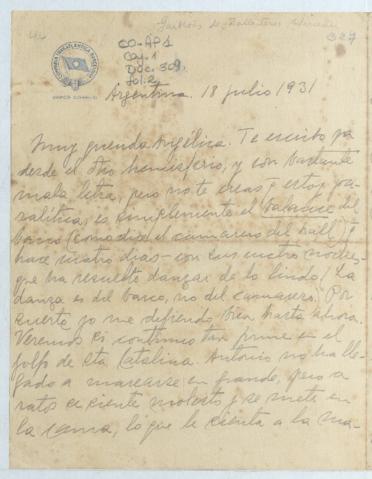 Gaibrois de Ballesteros, Mercedes
327
CO-AP1
Caj. 1
Doc. 309,
fol. 2
COMPAÑIA TRASATLANTICA BARCELONA
Argentina. 18 julio 1931
Muy querida Angélica. Te escribo ya
desde el otro hemisferio, y con bastante
mala letra, pero no te creas q estoy pa-
ralítica; es simplemente el balance del
barco (como dice el camarero del hall) q
hace cuatro días - con sus cuatro noches -
que ha resuelto danzar de lo lindo! La
danza es del barco, no del camarero. Por
suerte yo me defiendo bien hasta ahora.
Veremos si continuo tan firme en el
golfo de Sta Catalina. Antonio no ha lle-
gado a marearse en grande, pero a
ratos se siente molesto y se mete en
la cama, lo que le sienta a la ma-